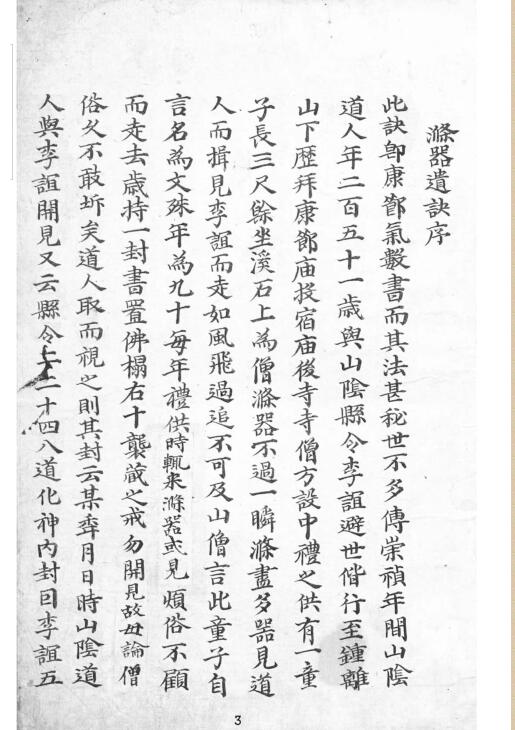 滌器遺訣序
此訣卽康節氣數書而其法甚秘世不多傳崇禎年間山陰
道人年二百五十一歲與山陰縣令李誼避世偕行至鍾離
山下歷拜康節庙投宿庙後寺寺僧方設中禮之供有一童
子長三尺餘坐溪石上為僧滌器不過一瞬滌盡多器見道
人而揖見李誼而走如風飛過追不可及山僧言此童子自
言名為文殊年為九十每年禮供時輒来滌器或見煩俗不顧
而走去歲持一封書置佛榻右十襲藏之戒勿開見故毋論僧
俗久不敢坼矣道人取而視之則其封云某年月日時山陰道
人與李誼開見又云縣令上二十四八道化神內封曰李誼五
3